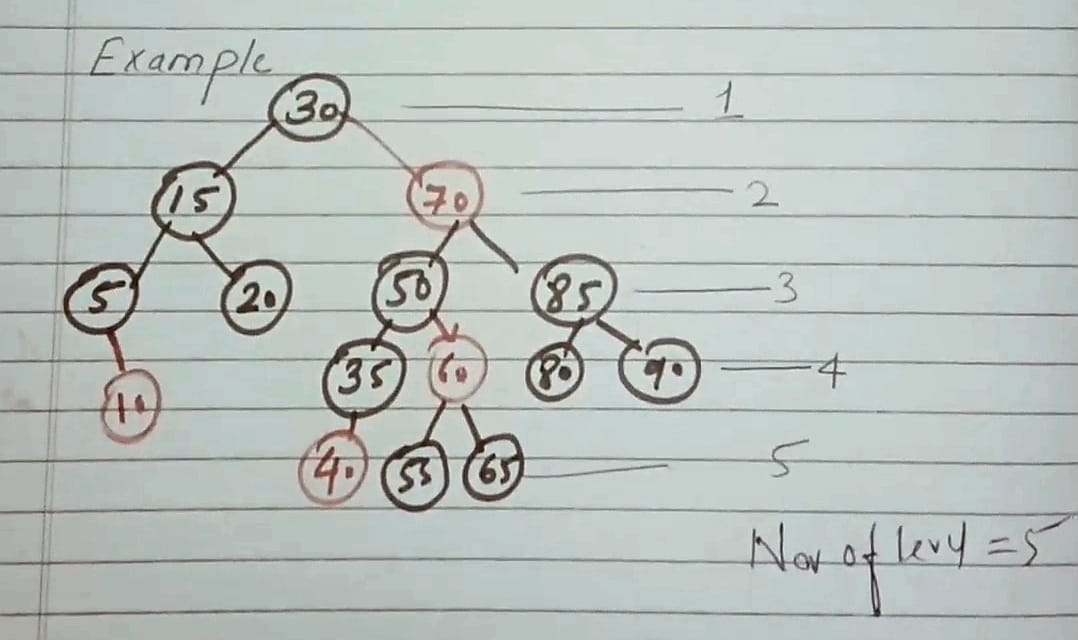 Example
30 1
15 70 2
5 20 50 85 3
10 35 60 80 90 4
40 55 65 5
of = 5